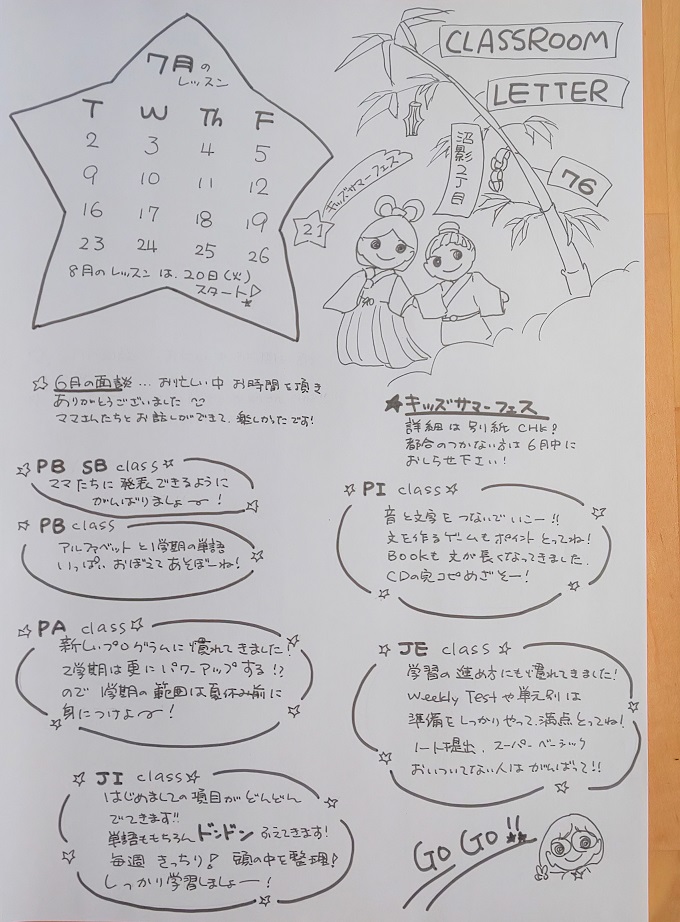 7月の
レッスン
T W Th F
2 3 4 5
9 10 11 12
16 17 18 19
23 24 25 26
8月のレッスンは、20日(火)
スタート♪
CLASSROOM
LETTER
76
沼影2丁目
キッズサマーフェス
21
☆6月の面談…お忙しい中 お時間を頂き
ありがとうございました
ママさんたちとお話しができて、楽しかったです!
★キッズサマーフェス
詳細は別紙 CHK!
都合のつかない方は6月中に
おしらせ下さい!
PB SB class☆
ママたちに発表できるように
がんばりましょー!
PB class
アルファベットと1学期の単語
いっぱい おぼえてあそぼーね!
PI class☆
音と文字をつないでいこー!!
文を作るゲームもポイントとってね!
BOOKも文が長くなってきました.
CDの完コピめざそー!
PA class☆
新しいプログラムに慣れてきました!
2学期は更にパワーアップする!?
ので 1学期の範囲は夏休み前に
身につけよー!
JE class☆
学習の進め方にも慣れてきました!
Weekly Testや単元別は
準備をしっかりやって、満点とってね!
ノート提出、スーパーベーシック
おいついてない人はがんばって!!
JI class☆
はじめましての項目がどんどん
でてきます!!
単語ももちろんドンドンふえてきます!
毎週 きっちり! 頭の中を整理!
しっかり学習しましょー!
GO GO!!